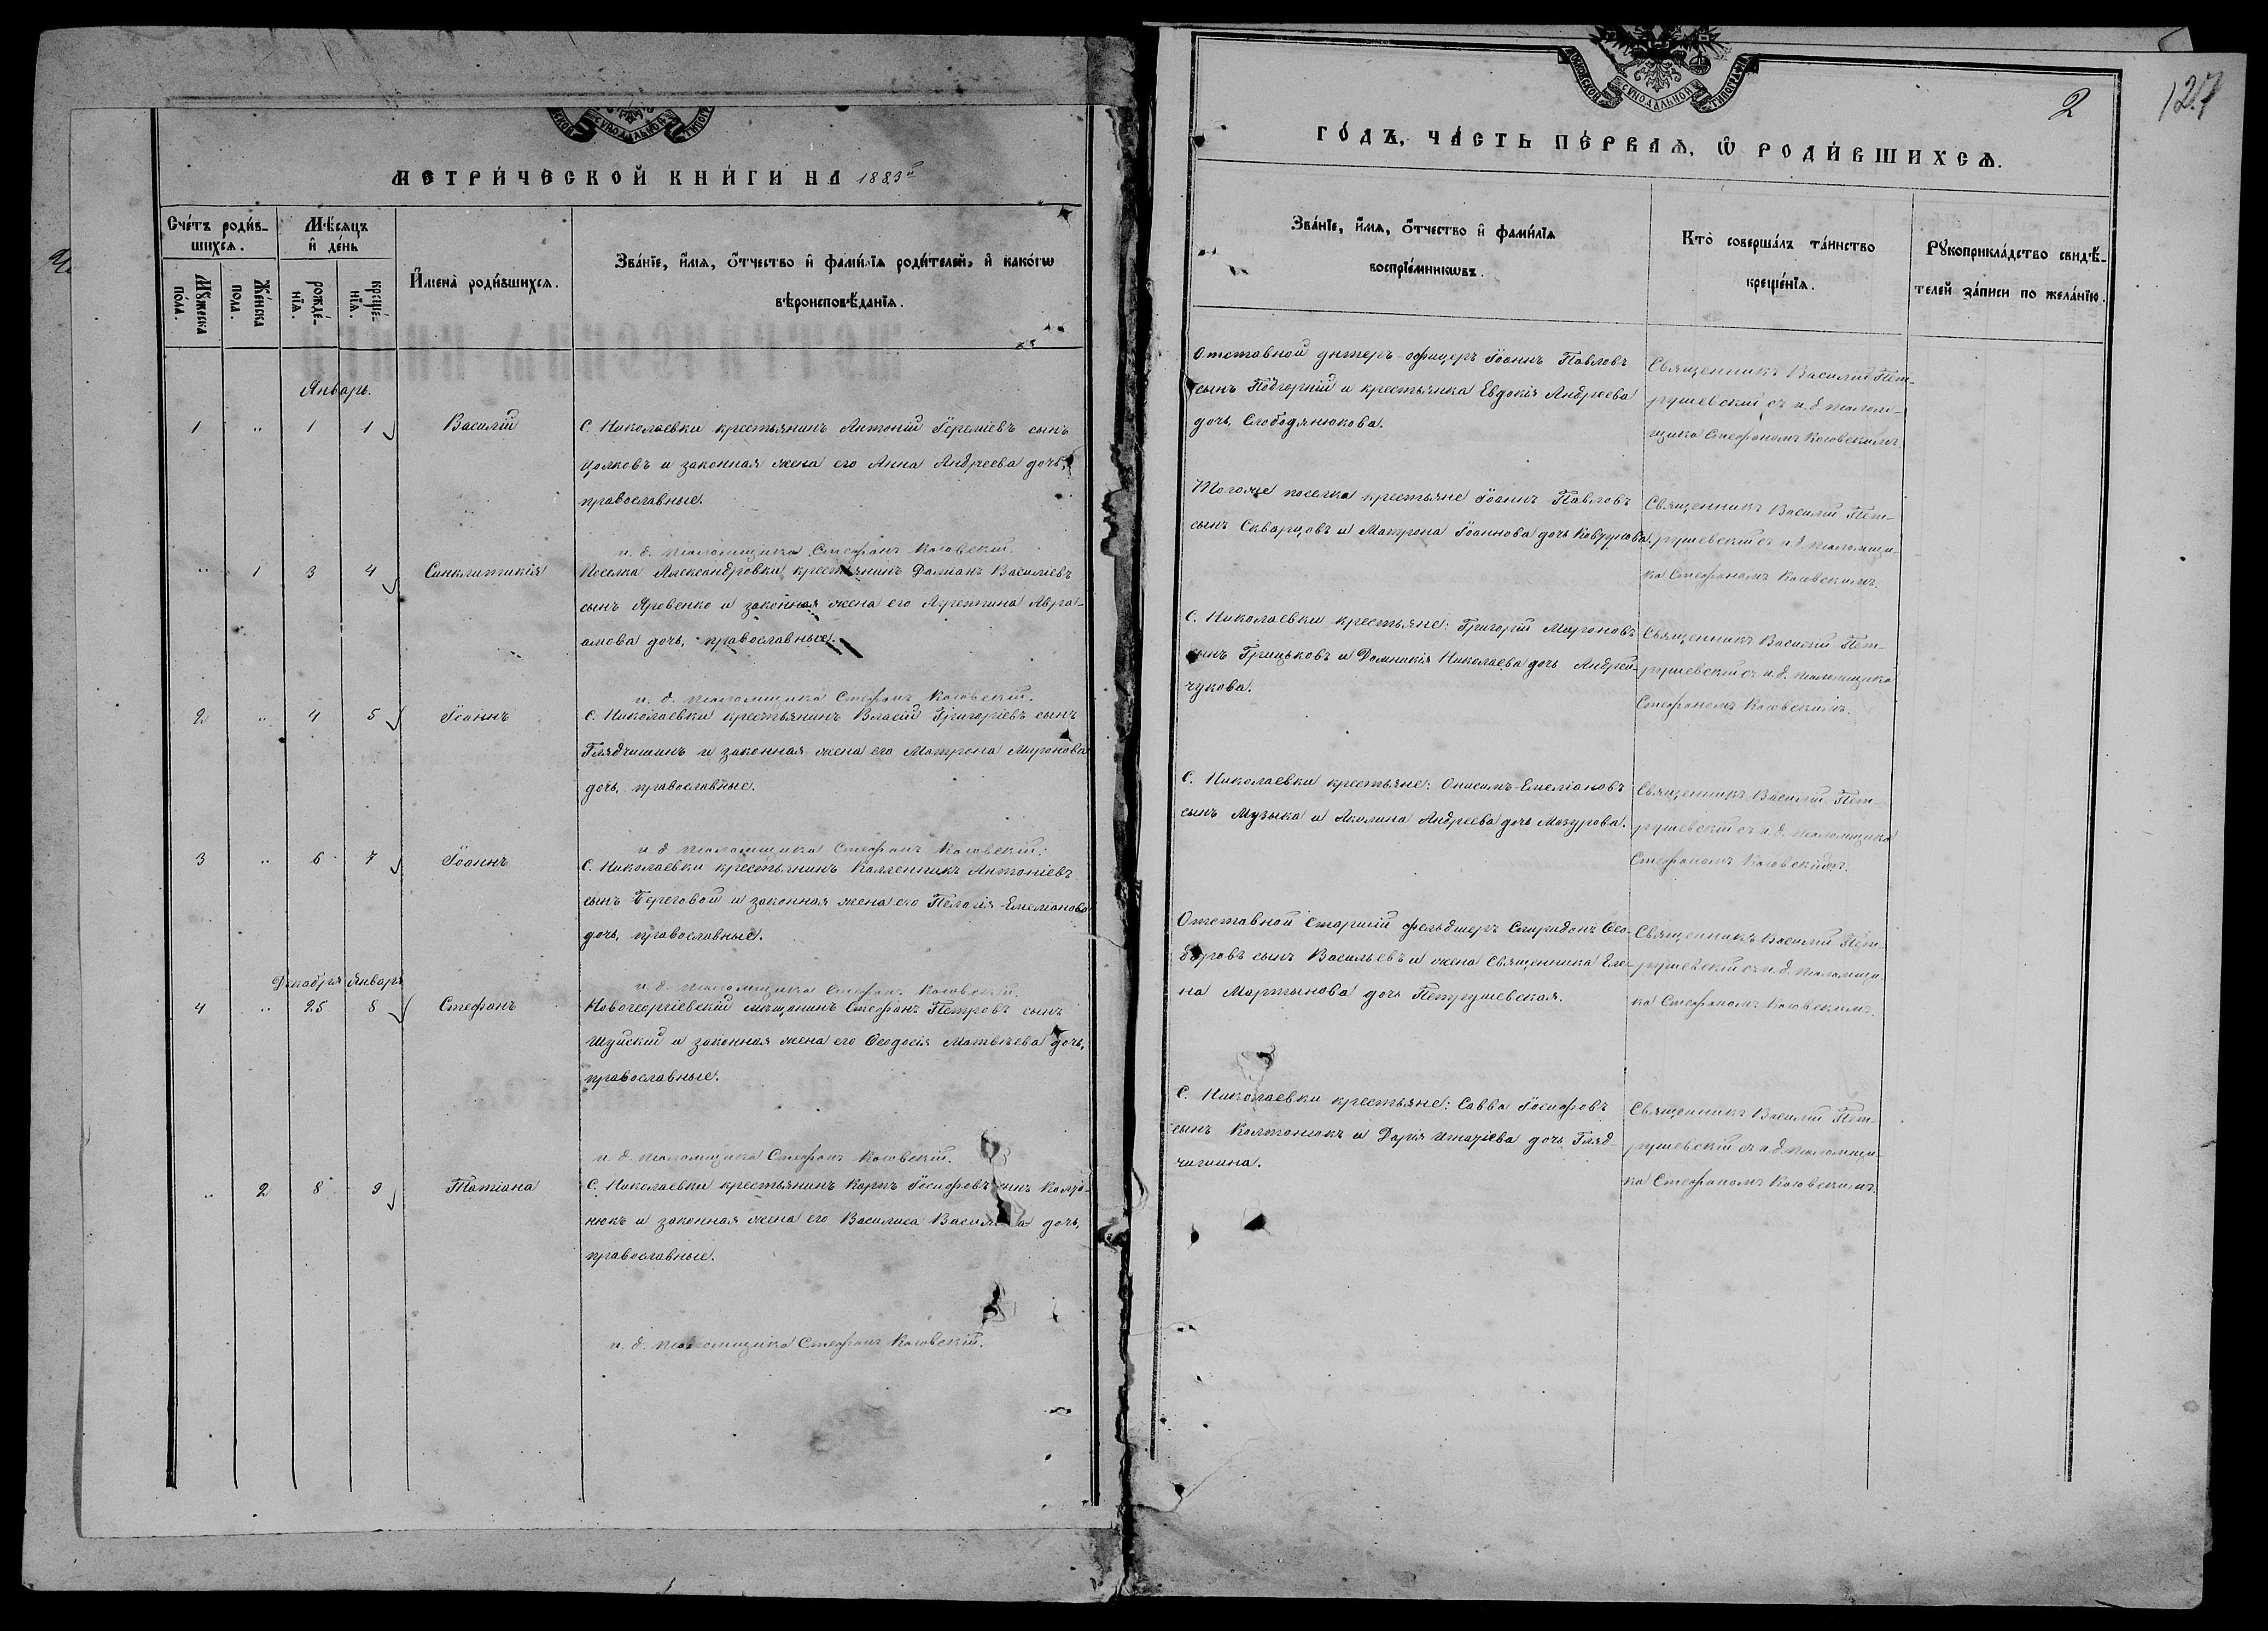 МЕТРИ́ЧЕСКОЙ КНИ́ГИ НА 1883й
Сче́тъ роди́в-
шихся.
Мѣ́сяцъ
и҆ де́нь
Му́жеска
по́ла.
Же́нска
по́ла.
рожде́-
нїѧ.
креще́-
нїѧ.
И҆мена̀ роди́вшихся.
Зва́нїе, и҆́мѧ, ѻ҆́тчество и҆ фами́лїѧ роди́телей, и҆ како́гѡ
вѣроисповѣ́данїѧ.
Январь.
1 " 1 1 Василій
С. Николаевки крестьянинъ Антоній Іереміевъ сынъ
Цолковъ и законная жена его Анна Андреева дочь,
православные.
и. д. псаломщика Стефанъ Косовскій.
" 1 3 4 Синклитикія
Поселка Александровки крестьянинъ Даміанъ Василіевъ
сынъ Яровенко и законная жена его Агриппина Авра-
амова дочь, православные.
и. д. псаломщика Стефанъ Косовскій.
2 " 4 5 Іоаннъ
С. Николаевки крестьянинъ Власій Григоріевъ сынъ
Глядчишинъ и законная жена его Матрона Миронова
дочь, православные.
и. д. псаломщика Стефанъ Косовскій.
3 " 6 7 Іоаннъ
С. Николаевки крестьянинъ Каллиникъ Антоніевъ
сынъ Береговой и законная жена его Пелагія Емеліанова
дочь, православные.
и. д. псаломщика Стефанъ Косовскій.
Декабря Января
4 " 25 8 Стефанъ
Новогеоргіевскій мѣщанинъ Стефанъ Петровъ сынъ
Шуйскій и законная жена его Ѳеодосія Матвѣева дочь,
православные.
и. д. псаломщика Стефанъ Косовскій.
" 2 8 9 Татіана
С. Николаевки крестьянинъ Карпъ Іосифовъ сынъ Колто-
нюкъ и законная жена его Василиса дочь,
православные.
и. д. псаломщика Стефанъ Косовскій.
МОСКОВСКОЙ СУНОДАЛЬНОЙ ТИПОГРАФІИ
2
127
ГО́ДЪ, ЧА́СТЬ ПЕ́РВАѦ, Ѡ҆ РОДИ́ВШИХСѦ.
Зва́нїе, и҆́мѧ, ѻ҆́тчество и҆ фами́лїѧ
воспрїе́мникѡвъ.
Кто̀ соверша́лъ та́инство
креще́нїѧ.
Рукоприкла́дство свидѣ́-
телей за́писи по жела́нїю.
Отставной унтеръ-офицеръ Іоаннъ Павловъ
сынъ Подгорній и крестьянка Евдокія Андреева
дочь, Слободянюкова.
Священникъ Василій Пет-
рушевскій съ и. д. псалом-
щика Стефаномъ Косовскимъ
Тогоже поселка крестьяне Іоаннъ Павловъ
сынъ Скварцовъ и Матрона Іоаннова дочь Ковтунова.
Священникъ Василій Пет-
рушевскій съ и. д. псаломщи-
ка Стефаномъ Косовскимъ.
С. Николаевки крестьяне: Григорій Мироновъ
сынъ Грицьковъ и Домникія Николаева дочь Андрей-
чукова.
Священникъ Василій Пет-
рушевскій съ и. д. псаломщика
Стефаномъ Косовскимъ.
С. Николаевки крестьяне: Онисимъ Емеліановъ
сынъ Музыка и Акилина Андреева дочь Мазурова.
Священникъ Василій Пет-
рушевскій съ и. д. псаломщика
Стефаномъ Косовскимъ.
Отставной старшій фельдшеръ Спиридонъ Ѳео-
доровъ сынъ Васильевъ и жена Священника Еле-
на Мартынова дочь Петрушевская.
Священникъ Василій Пет-
рушевскій съ и. д. псаломщи-
ка Стефаномъ Косовскимъ.
С. Николаевки крестьяне: Савва Іосифовъ
сынъ Колтонюкъ и Дарія Игнатіева дочь Гляд-
чишина.
Священникъ Василій Пет-
рушевскій съ и. д. псаломщи-
ка Стефаномъ Косовскимъ.